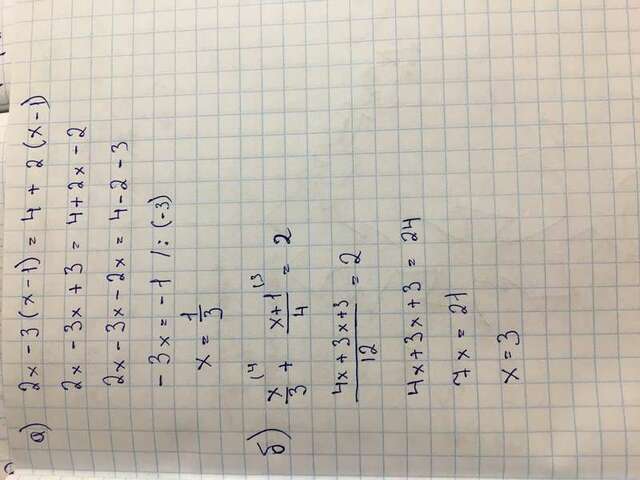 а) 2x - 3(x-1) = 4 + 2(x-1)
2x - 3x + 3 = 4+2x - 2
2x - 3x - 2x = 4-2-3
-3x = -1 /: (-3)
x = 1/3
б) x/3 (4 + x+1/4 (3 = 2
4x + 3x+3/12 = 2
4x+3x+3 = 24
7x = 21
x = 3